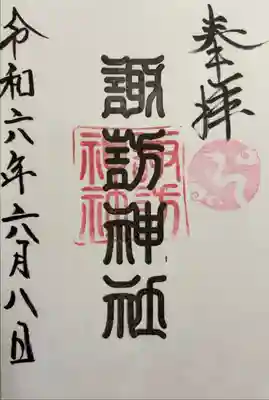 奉拝
諏訪神社
諏訪神社
令和六年六月八日